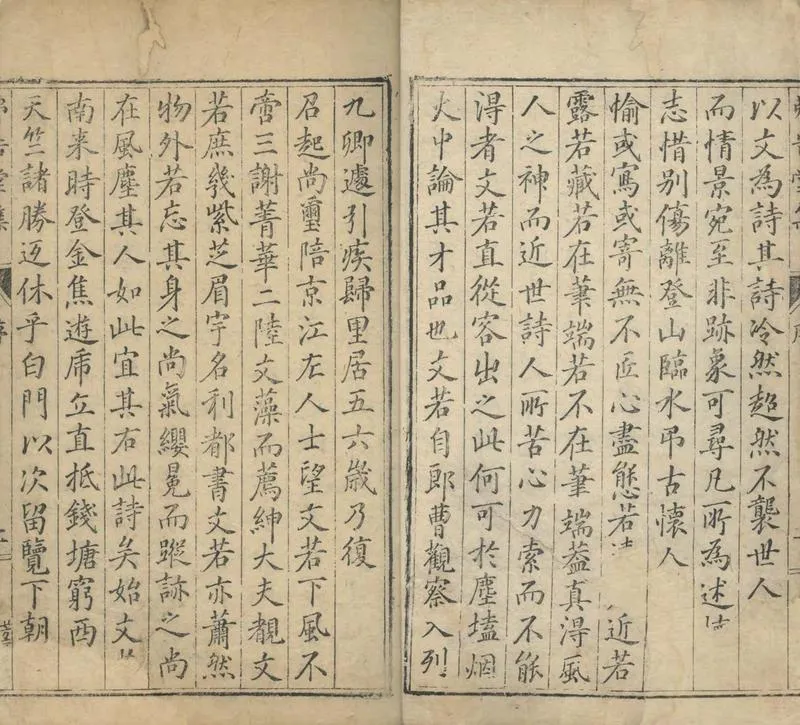 以文為詩其詩冷然超然不襲世人
而情景宛至非跡象可尋凡所為述
志惜別傷離登山臨水弔古懷人
愉或寫或寄無不匠心盡態若 近若
露若藏若在筆端若不在筆端葢真得風
人之神而近世詩人所苦心力索而不能
得者文若直從容出之此何可於塵壒烟
火中論其才品也文若自郎曹觀察入列
九卿遽引疾歸里居五六歲乃復
召起尚璽陪京江左人士望文若下風不
啻三謝菁華二陸文藻而薦紳大夫覩文
若庶幾紫芝眉宇名利都書文若亦蕭然
物外若忘其身之尚氣纓冕而蹤跡之尚
在風塵其人如此宜其右此詩矣始文
南来時登金焦遊虎丘直抵錢塘窮西
天竺諸勝迺休乎白門以次留覽下朝